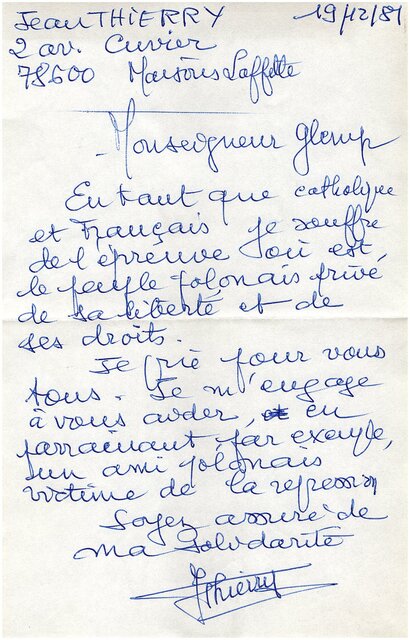 Jean THIERRY
19/12/81
2 av. Cuvier
78600 Maisons Laffitte
Monseigneur Glemp
En tant que catholique
et Français je souffre
de l'épreuve où est
le peuple polonais privé
de sa liberté et de
ses droits.
Je prie pour vous
tous. Je m'engage
à vous aider, en
parrainant par exemple,
un ami polonais
victime de la répression
Soyez assuré de
ma solidarité
JThierry